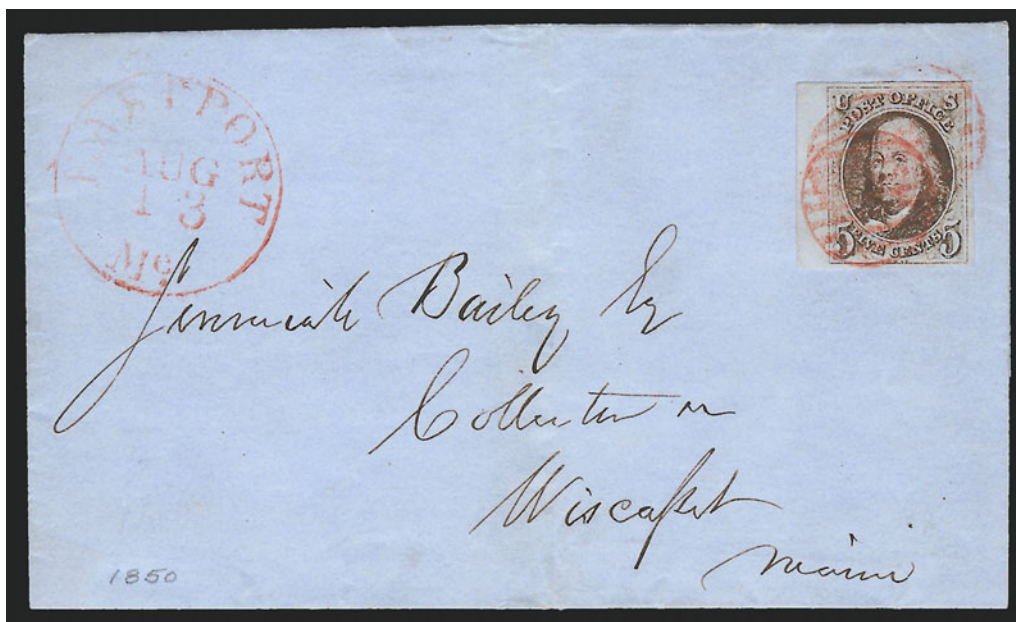 EASTPORT
AUG
13
Me.
U S
POST OFFICE
5 FIVE CENTS 5
Jeremiah Bailey Esq
Collector
Wiscasset
Maine
1850